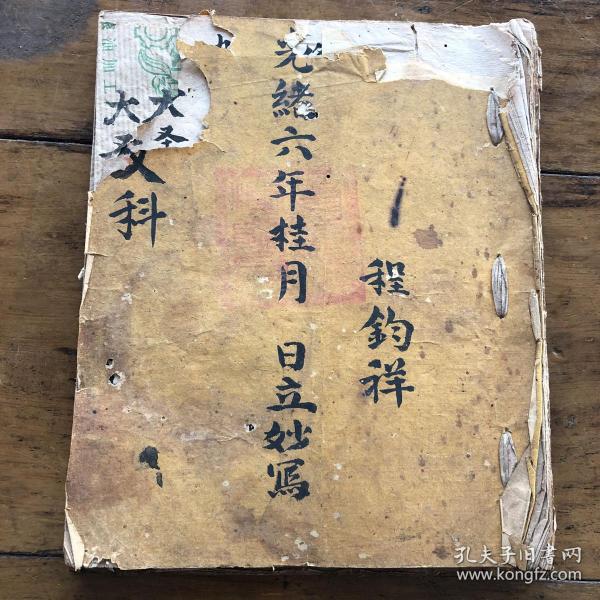 程鈞祥
光緒六年桂月 日立妙寫
大圣
大交科
孔夫子旧书网
www.kongfz.com